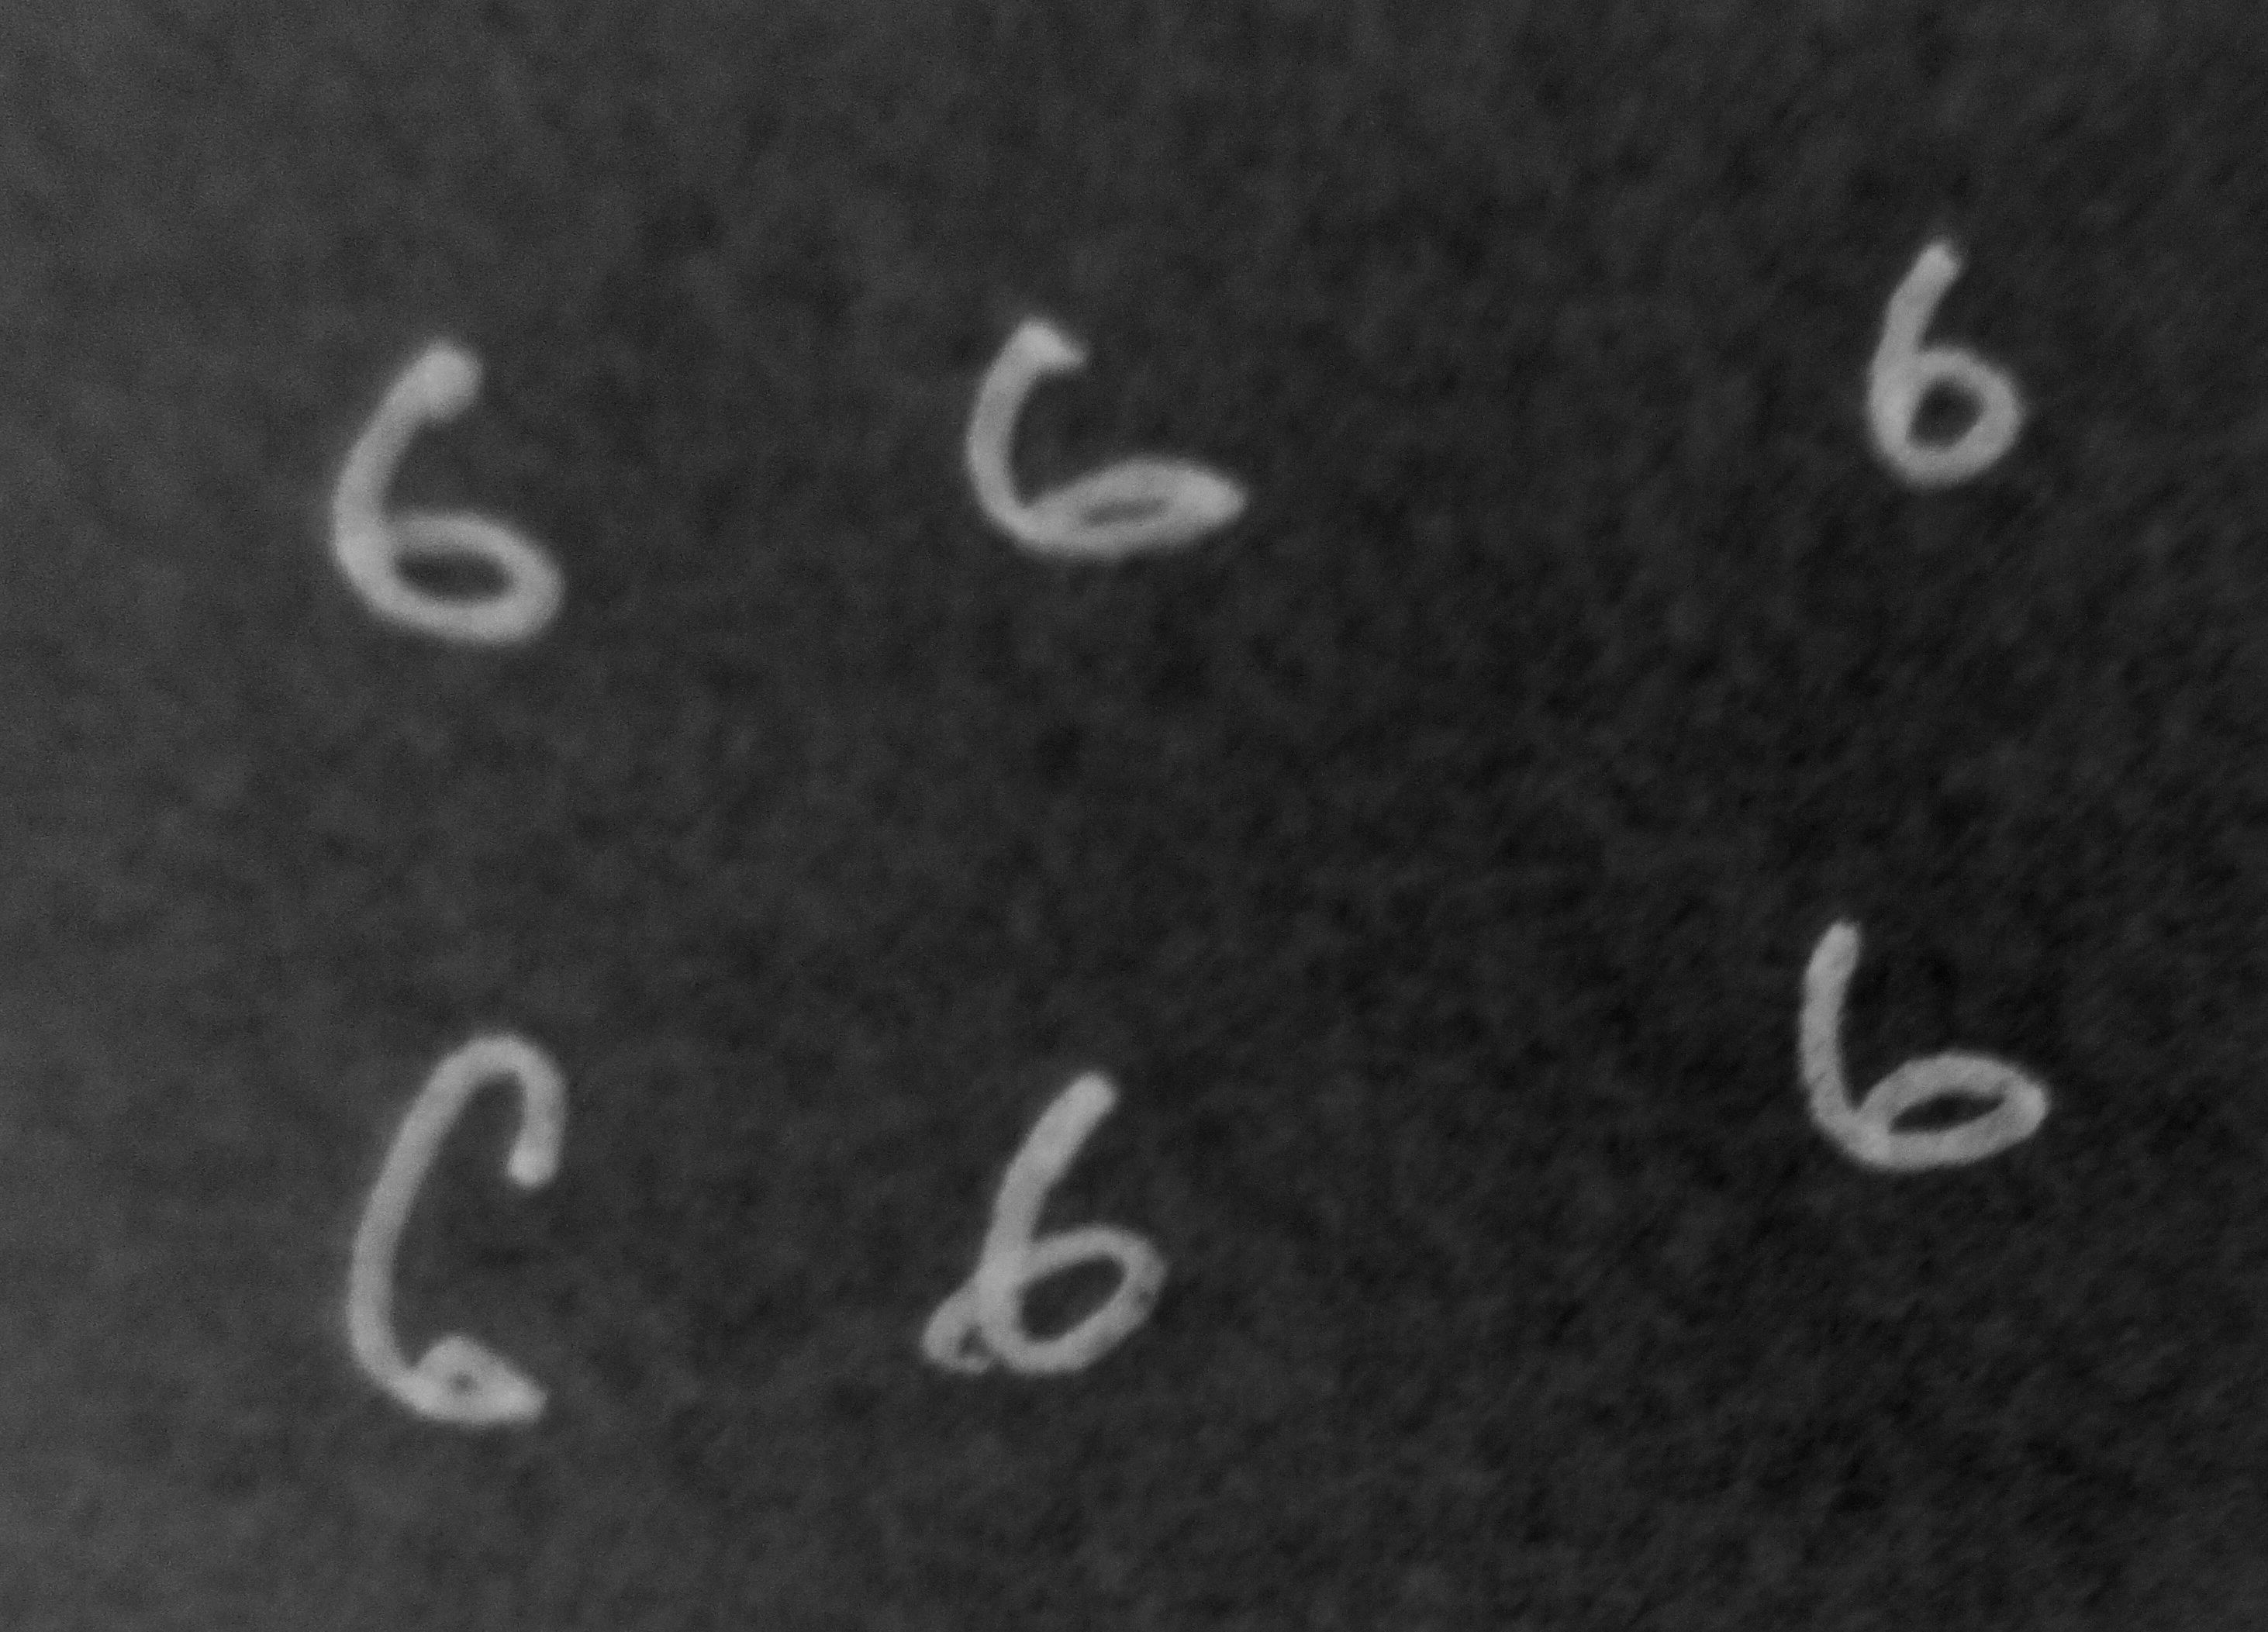 6 6 6
6 6 6